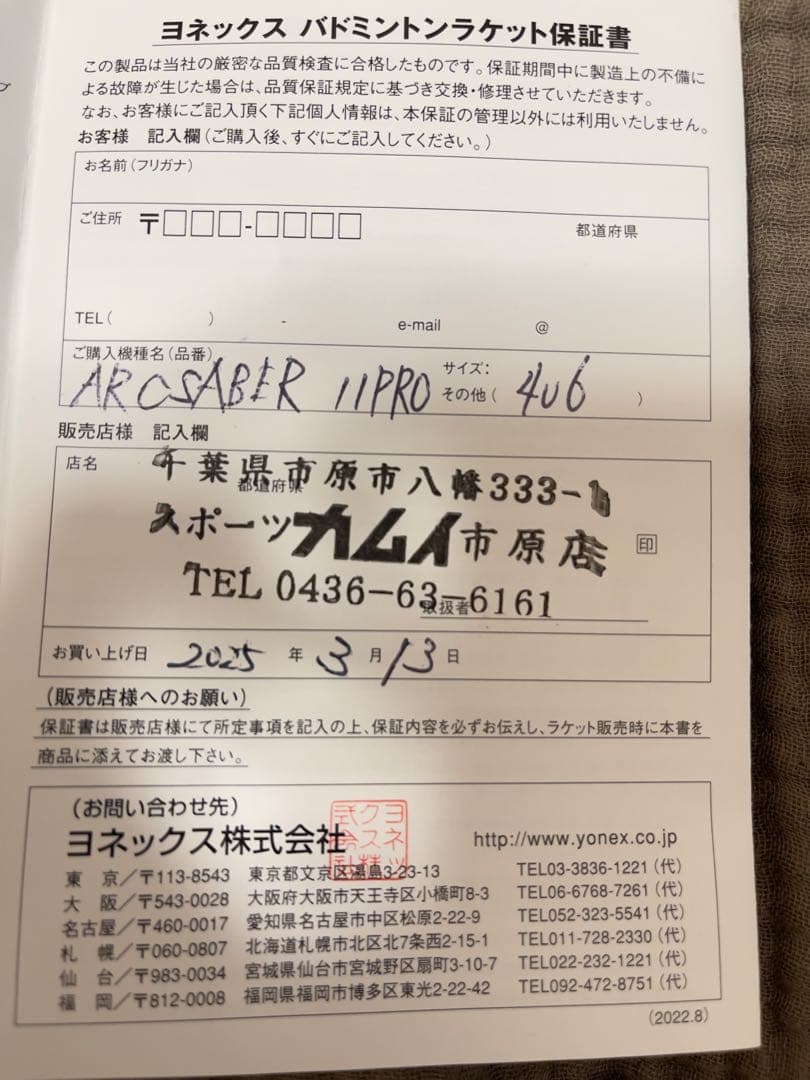 ヨネックス バドミントンラケット保証書
この製品は当社の厳密な品質検査に合格したものです。保証期間中に製造上の不備に
よる故障が生じた場合は、品質保証規定に基づき交換・修理させていただきます。
なお、お客様にご記入頂く下記個人情報は、本保証の管理以外には利用いたしません。
お客様 記入欄(ご購入後、すぐにご記入してください。)
お名前(フリガナ)
ご住所 〒□□□-□□□□ 都道府県
TEL( ) - e-mail @
ご購入機種名(品番) サイズ:
ARCSABER 11PRO その他( 4U6 )
販売店様 記入欄
店名 千葉県市原市八幡333-1
都道府県
スポーツカムイ市原店 印
TEL 0436-63-6161
取扱者
お買い上げ日 2025 年 3 月 13 日
(販売店様へのお願い)
保証書は販売店様にて所定事項を記入の上、保証内容を必ずお伝えし、ラケット販売時に本書を
商品に添えてお渡し下さい。
(お問い合わせ先)
ヨネックス株式会社 http://www.yonex.co.jp
東 京/〒113-8543 東京都文京区湯島3-23-13 TEL03-3836-1221(代)
大 阪/〒543-0028 大阪府大阪市天王寺区小橋町8-3 TEL06-6768-7261(代)
名古屋/〒460-0017 愛知県名古屋市中区松原2-22-9 TEL052-323-5541(代)
札 幌/〒060-0807 北海道札幌市北区北7条西2-15-1 TEL011-728-2330(代)
仙 台/〒983-0034 宮城県仙台市宮城野区扇町3-10-7 TEL022-232-1221(代)
福 岡/〒812-0008 福岡県福岡市博多区東光2-22-42 TEL092-472-8751(代)
(2022.8)